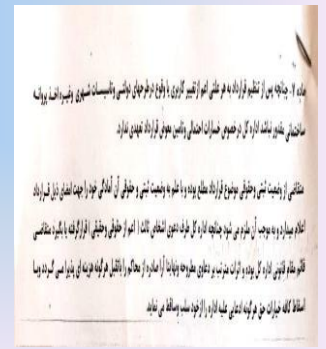 ماده ۷. چنانچه پس از تنظیم قرارداد به هر علتی اعم از تغییر کاربری یا وقوع در طرحهای دولتی و تاسیسات شهری وغیره اخذ پروانه
ساختمانی مقدور نباشد اداره کل در خصوص خسارات احتمالی وتامین معوض قرارداد تعهدی ندارد.
متقاضی از وضعیت ثبتی وحقوقی موضوع قرارداد مطلع بوده و با علم به وضعیت ثبتی و حقوقی آن آمادگی خود را جهت امضای ذیل قرارداد
اعلام میدارد و به موجب آن ملزم می شود چنانچه اداره کل طرف دعوی اشخاص ثالث ( اعم از حقوقی وحقیقی ) قرار گرفته یا بگیرد متقاضی
قائم مقام قانونی اداره کل بوده و اثرات مترتب بر دعاوی مطروحه ونهایتا آرا صادره از محاکم را باتقبل هرگونه هزینه ای پذیرا می گردد وبا
اسقاط کافه خیارات حق هرگونه ادعایی علیه اداره را از خود سلب وساقط می نماید.